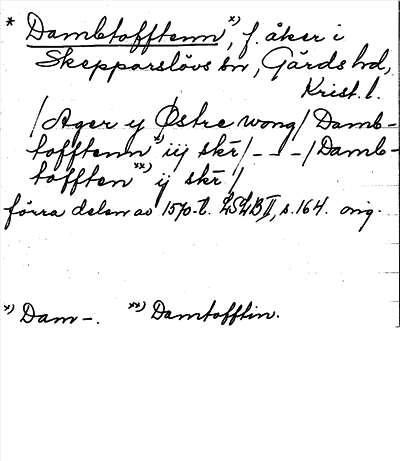 * Dambtofftenn x), f. åker i
Skepparslövs sn, Gärds hd,
Krist. l.
/Ager y Østre wong/ Damb-
tofftenn x) iij skr̄/ - - - / Damb-
tofften xx) ij skr̄ /
förra delen av 1570-t. LSLB II, s. 164. orig.
x) Dam-. xx) Damtofftin.